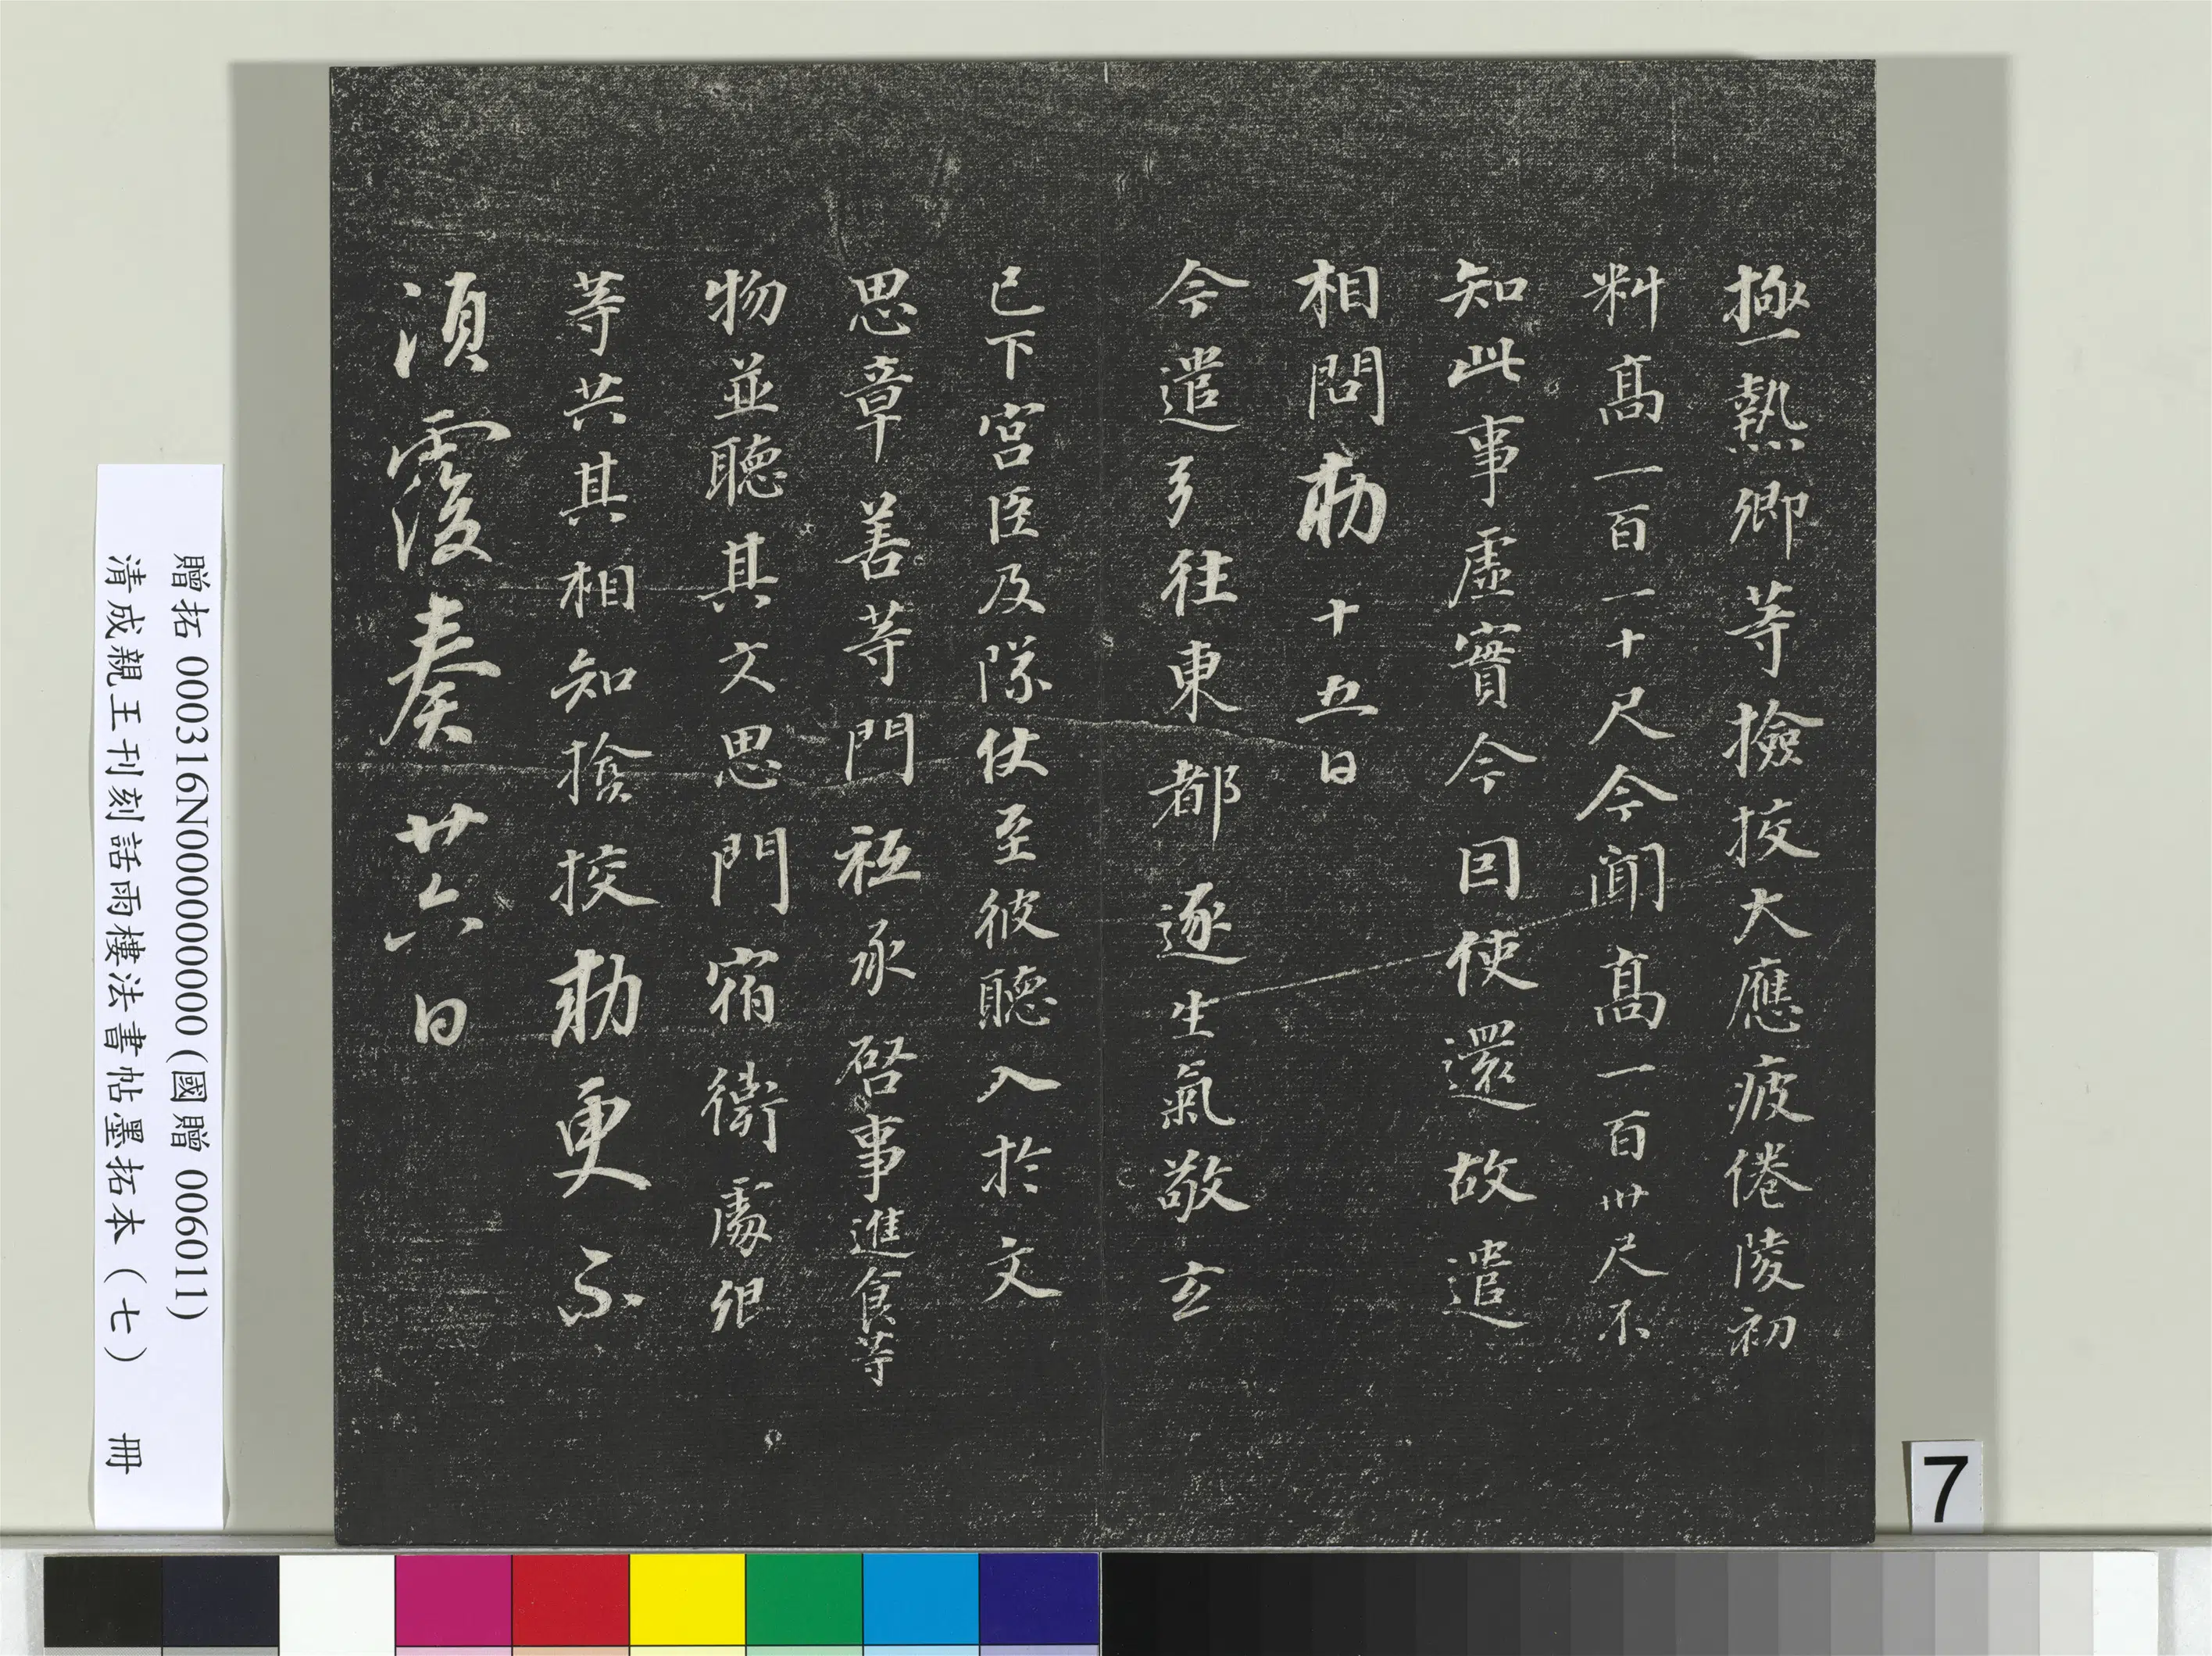 極熱卿等撿挍大應疲倦陵初
料高一百一十尺今聞高一百卅尺不
知此事虛實今因使還故遣
相問勅十五日
今遣弓往東都逐生氣敬玄
已下宮臣及隊仗至彼聽入於文
思章善等門祗承啓事進食等
物並聽其文思門宿衛處仰
等共其相知撿挍勅更不
須覆奏廿六日
贈拓 000316N000000000 (國贈 006011)
清成親王刊刻話雨樓法書帖墨拓本(七) 冊
7